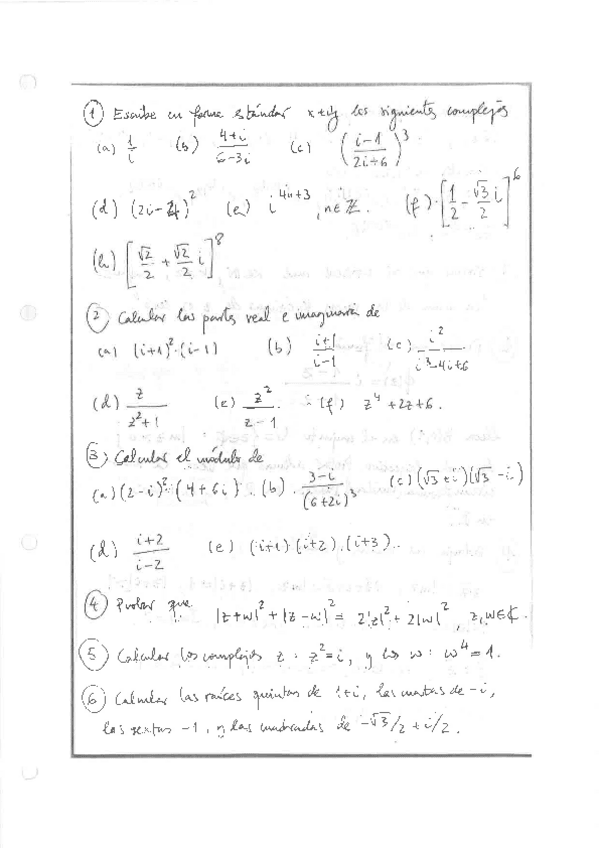 ① Escribe en forma estándar x+iy los siguientes complejos
(a) 1/i (b) (4+i)/(6-3i) (c) ((i-1)/(2i+6))^3
(d) (2i-4)^2 (e) i^{4n+3}, n∈ℤ. (f) [1/2 - √3/2 i]^6
(h) [√2/2 + √2/2 i]^8
② Calcular las partes real e imaginaria de
(a) (i+1)^2·(i-1) (b) (i+1)/(i-1) (c) i^2/(i^3-4i+6)
(d) z/(z^2+1) (e) z^2/(z-1) (f) z^4+2z+6.
③ Calcular el módulo de
(a) (2-i)^2·(4+6i). (b) (3-i)/(6+2i)^3 (c) (√3+i)(√3-i)
(d) (i+2)/(i-2) (e) (i+1)(i+2).(i+3).
④ Probar que |z+w|^2+|z-w|^2=2|z|^2+2|w|^2 z,w∈ℂ.
⑤ Calcular los complejos z : z^2=i, y los w: w^4=1.
⑥ Calcular las raíces quintas de 1+i, las cuartas de -i,
las sextas -1, y las cuadradas de -√3/2+i/2.